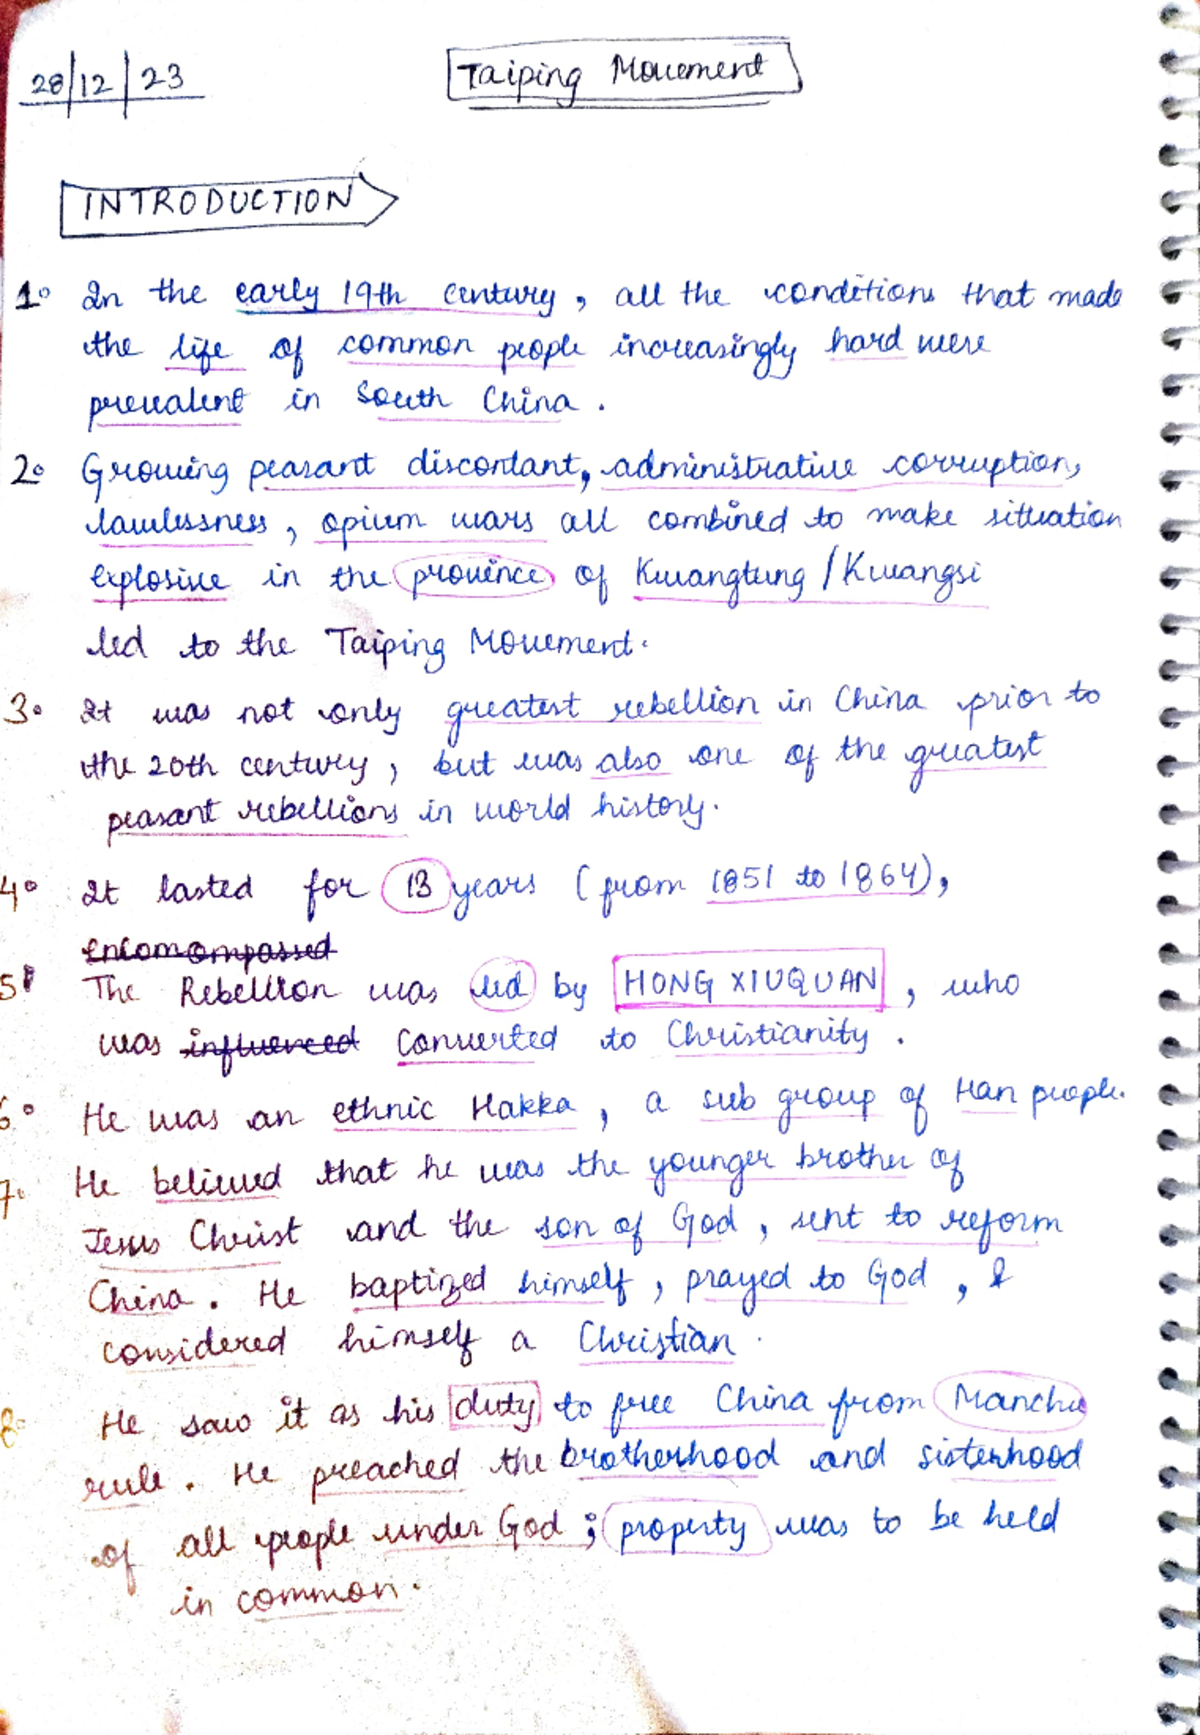 28/12/23
Taiping Movement
INTRODUCTION
1. In the early 19th century, all the conditions that made
the life of common people increasingly hard were
prevalent in South China.
2. Growing peasant discontant, administrative corruption,
lawlessness, opium wars all combined to make situation
explosive in the province of Kwangtung/Kwangsi
led to the Taiping Movement.
3. It was not only greatest rebellion in China prior to
the 20th century, but was also one of the greatest
peasant rebellions in world history.
4. It lasted for 13 years (from 1851 to 1864),
encomompassed
5. The Rebellion was led by HONG XIUQUAN, who
was influenced converted to Christianity.
6. He was an ethnic Hakka, a sub group of Han people.
7. He believed that he was the younger brother of
Jesus Christ and the son of God, sent to reform
China. He baptized himself, prayed to God, &
considered himself a Christian.
8. He saw it as his duty to free China from Manchu
rule. He preached the brotherhood and sisterhood
of all people under God; property was to be held
in common.